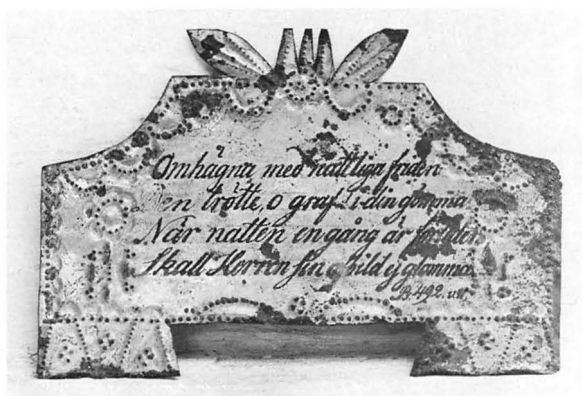 Omhägna med nattliga
Den trötte, o graf! i din gömma
När natten en gång är
Skall Herren sin bild ej glömma
492. v.